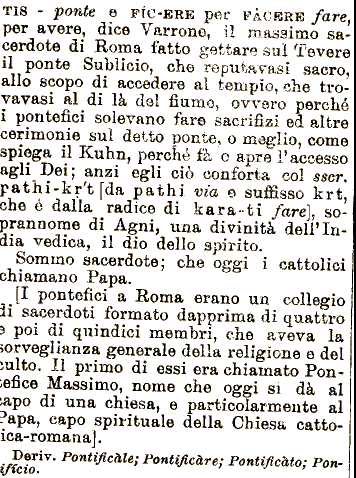 TIS - ponte e FĬC-ERE per FÀCERE fare,
per avere, dice Varrone, il massimo sa-
cerdote di Roma fatto gettare sul Tevere
il ponte Sublicio, che reputavasi sacro,
allo scopo di accedere al tempio, che tro-
vavasi al di là del fiume, ovvero perché
i pontefici solevano fare sacrifizi ed altre
cerimonie sul detto ponte, o meglio, come
spiega il Kuhn, perché fà o apre l'accesso
agli Dei; anzi egli ciò conforta col sscr.
pathi-kr't [da pathi via e suffisso krt,
che é dalla radice di kara-ti fare], so-
prannome di Agni, una divinità dell'In-
dia vedica, il dio dello spirito.
Sommo sacerdote; che oggi i cattolici
chiamano Papa.
[I pontefici a Roma erano un collegio
di sacerdoti formato dapprima di quattro
e poi di quindici membri, che aveva la
sorveglianza generale della religione e del
culto. Il primo di essi era chiamato Pon-
efice Massimo, nome che oggi si dà al
capo di una chiesa, e particolarmente al
Papa, capo spirituale della Chiesa catto-
ica-romana].
Deriv. Pontificàle; Pontificàre; Pontificàto; Pon-
ifício.